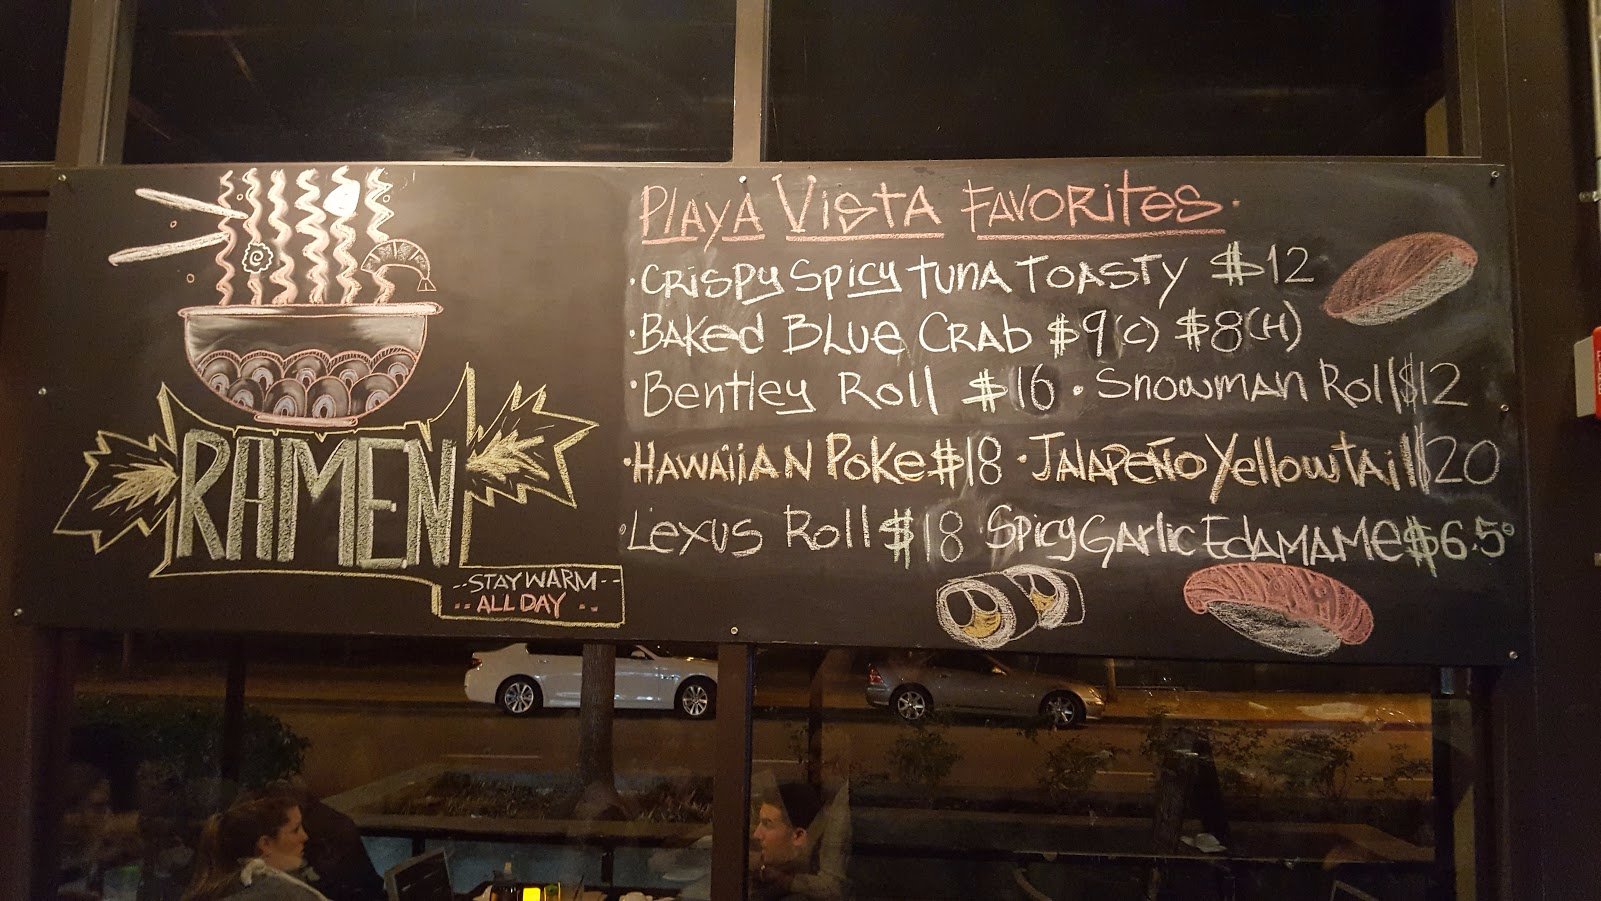 RAMEN
--STAY WARM--
..ALL DAY..
PLAYA VISTA FAVORITES.
·CRISPY SPICY TUNA TOASTY $12
·BAKED BLUE CRAB $9(C) $8(H)
·Bentley Roll $16 · SNOWMAN Roll $12
·HAWAIIAN POKE $18 · JALAPEÑO Yellowtail $20
·LEXUS Roll $18 · SPICY GARLIC EDAMAME $6.5⁰